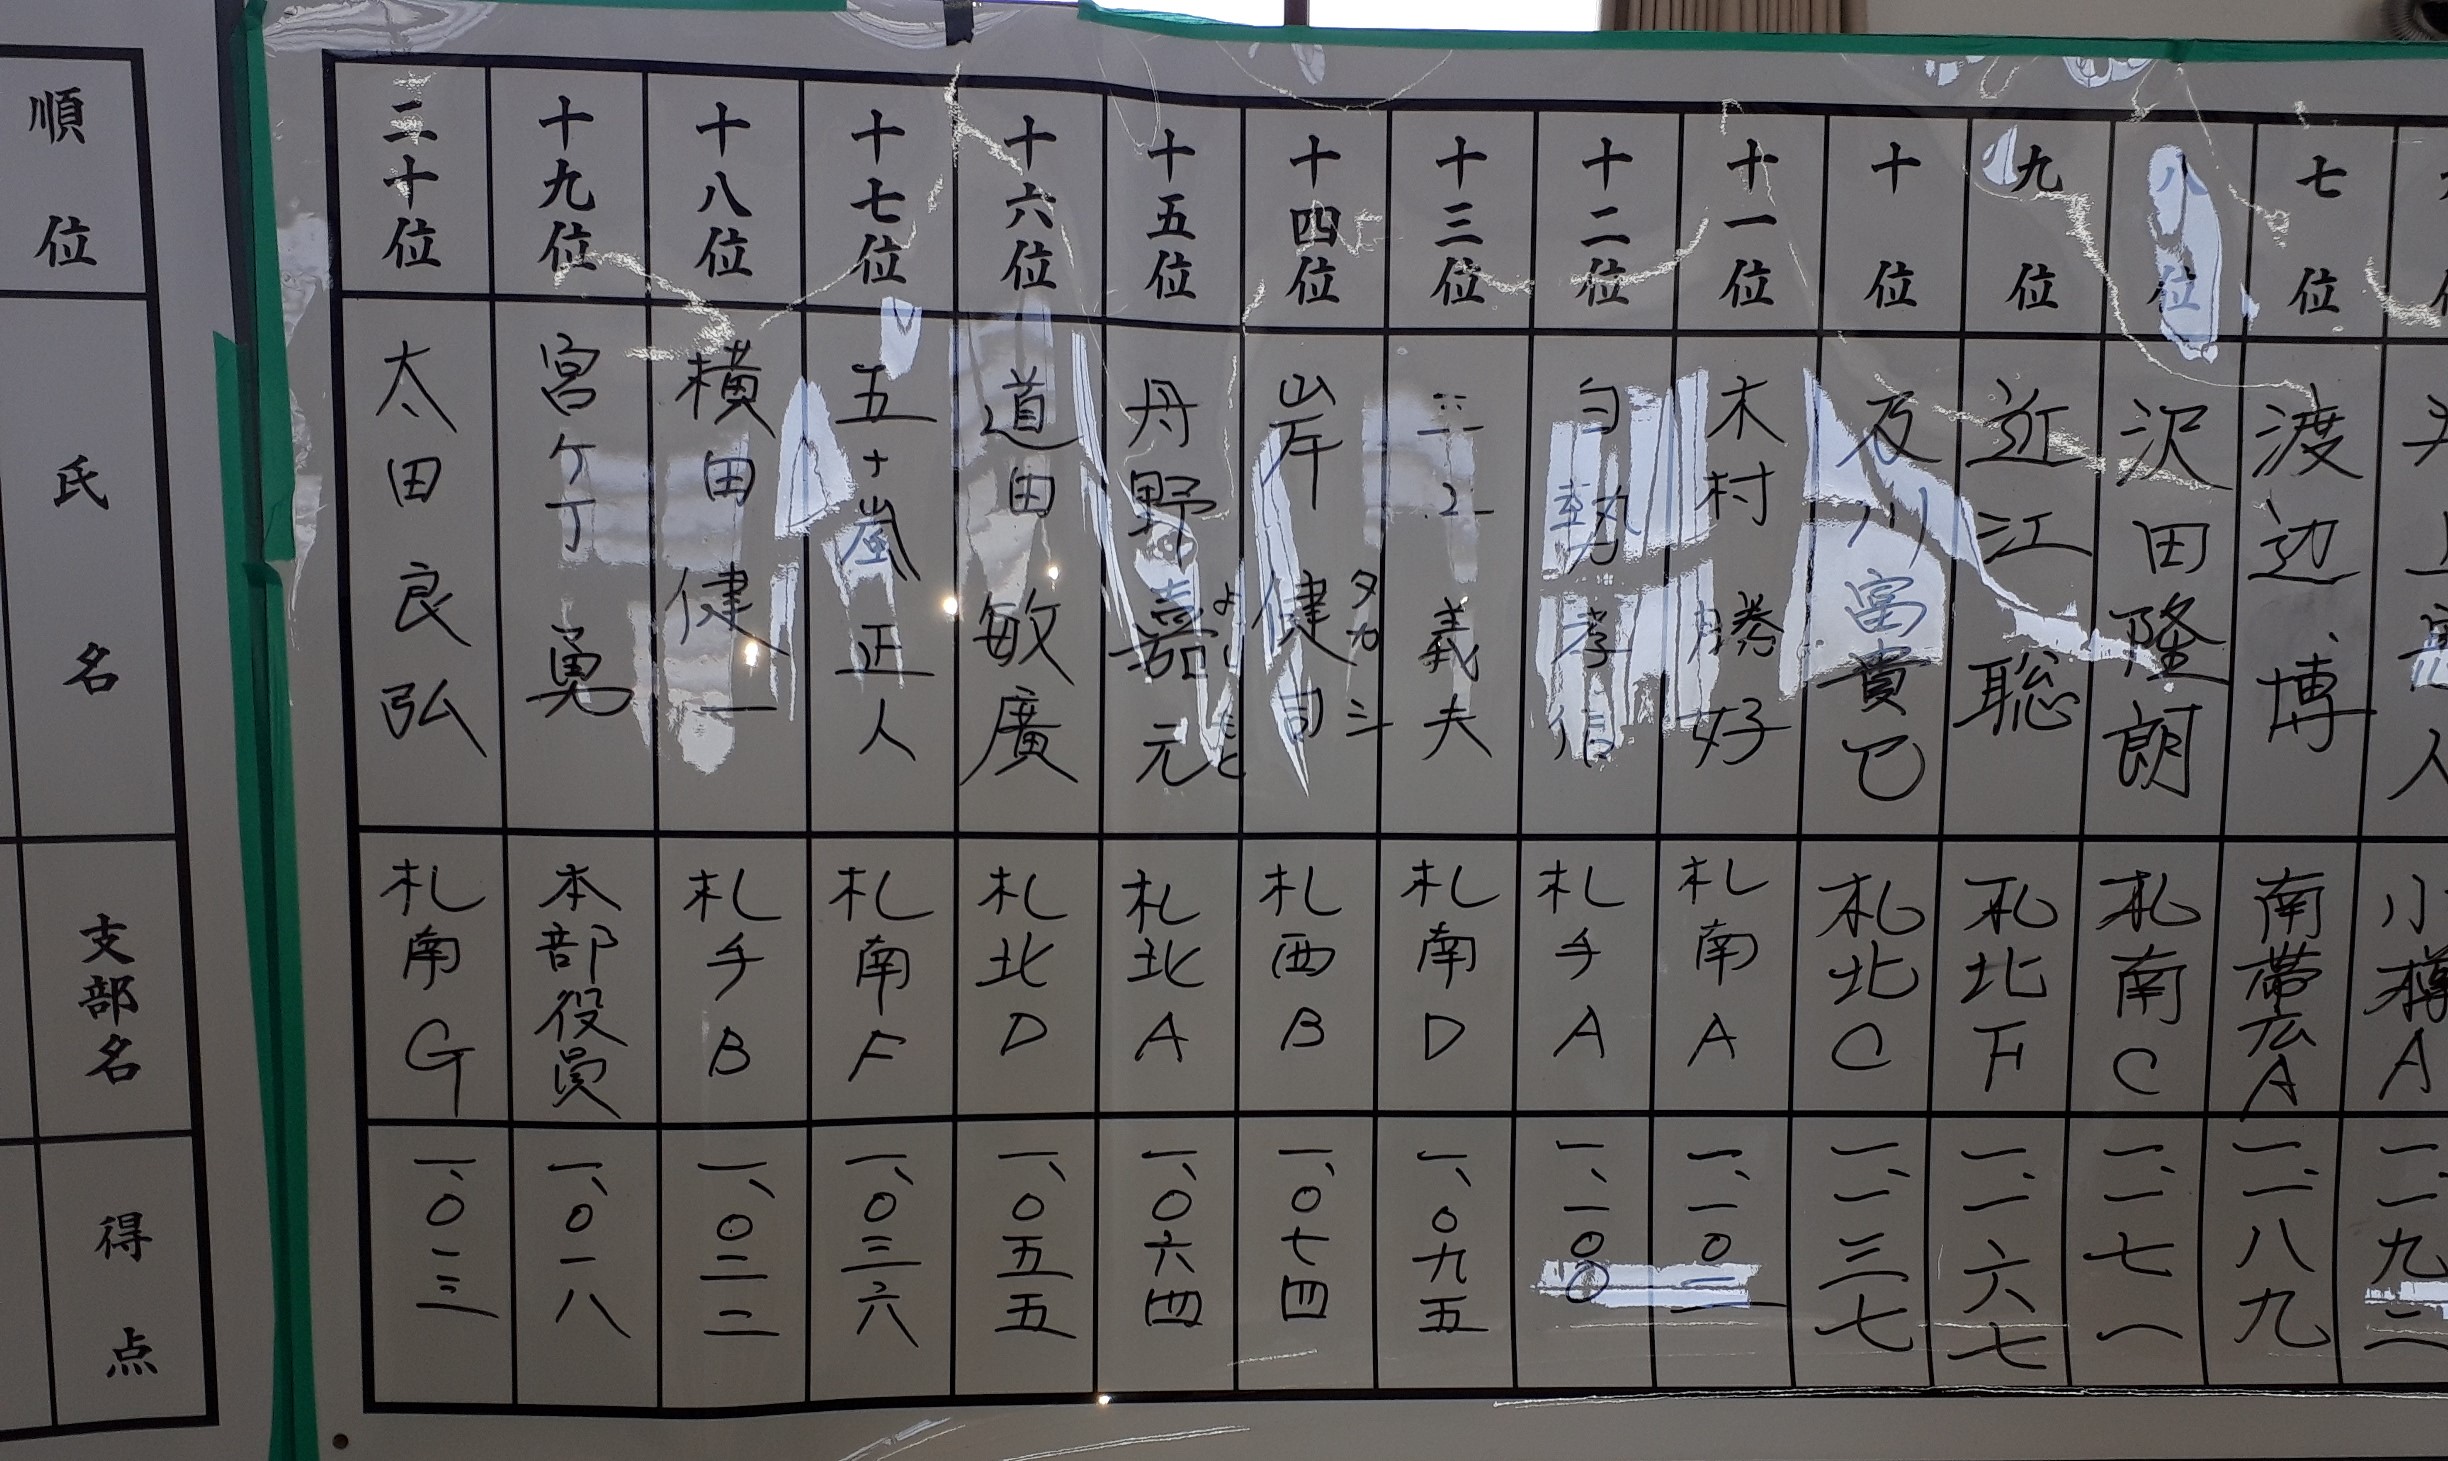 小樽A 一、一九二
七位 渡辺 博 南帯広A 一、一八九
八位 沢田隆朗 札南C 一、一七一
九位 近江 聡 札北F 一、一六七
十位 及川富貴巳 札北C 一、一三七
十一位 木村勝好 札南A 一、一〇二
十二位 白勢孝信 札手A 一、一〇〇
十三位 三上義夫 札南D 一、〇九五
十四位 岸 健司 タカシ 札西B 一、〇七四
十五位 丹野嘉元 よしもと 札北A 一、〇六四
十六位 道田敏廣 札北D 一、〇五五
十七位 五十嵐正人 札南F 一、〇三六
十八位 横田健一 札手B 一、〇二二
十九位 宮ケ丁 勇 本部役員 一、〇一八
二十位 太田良弘 札南G 一、〇一三
順位 氏名 支部名 得点